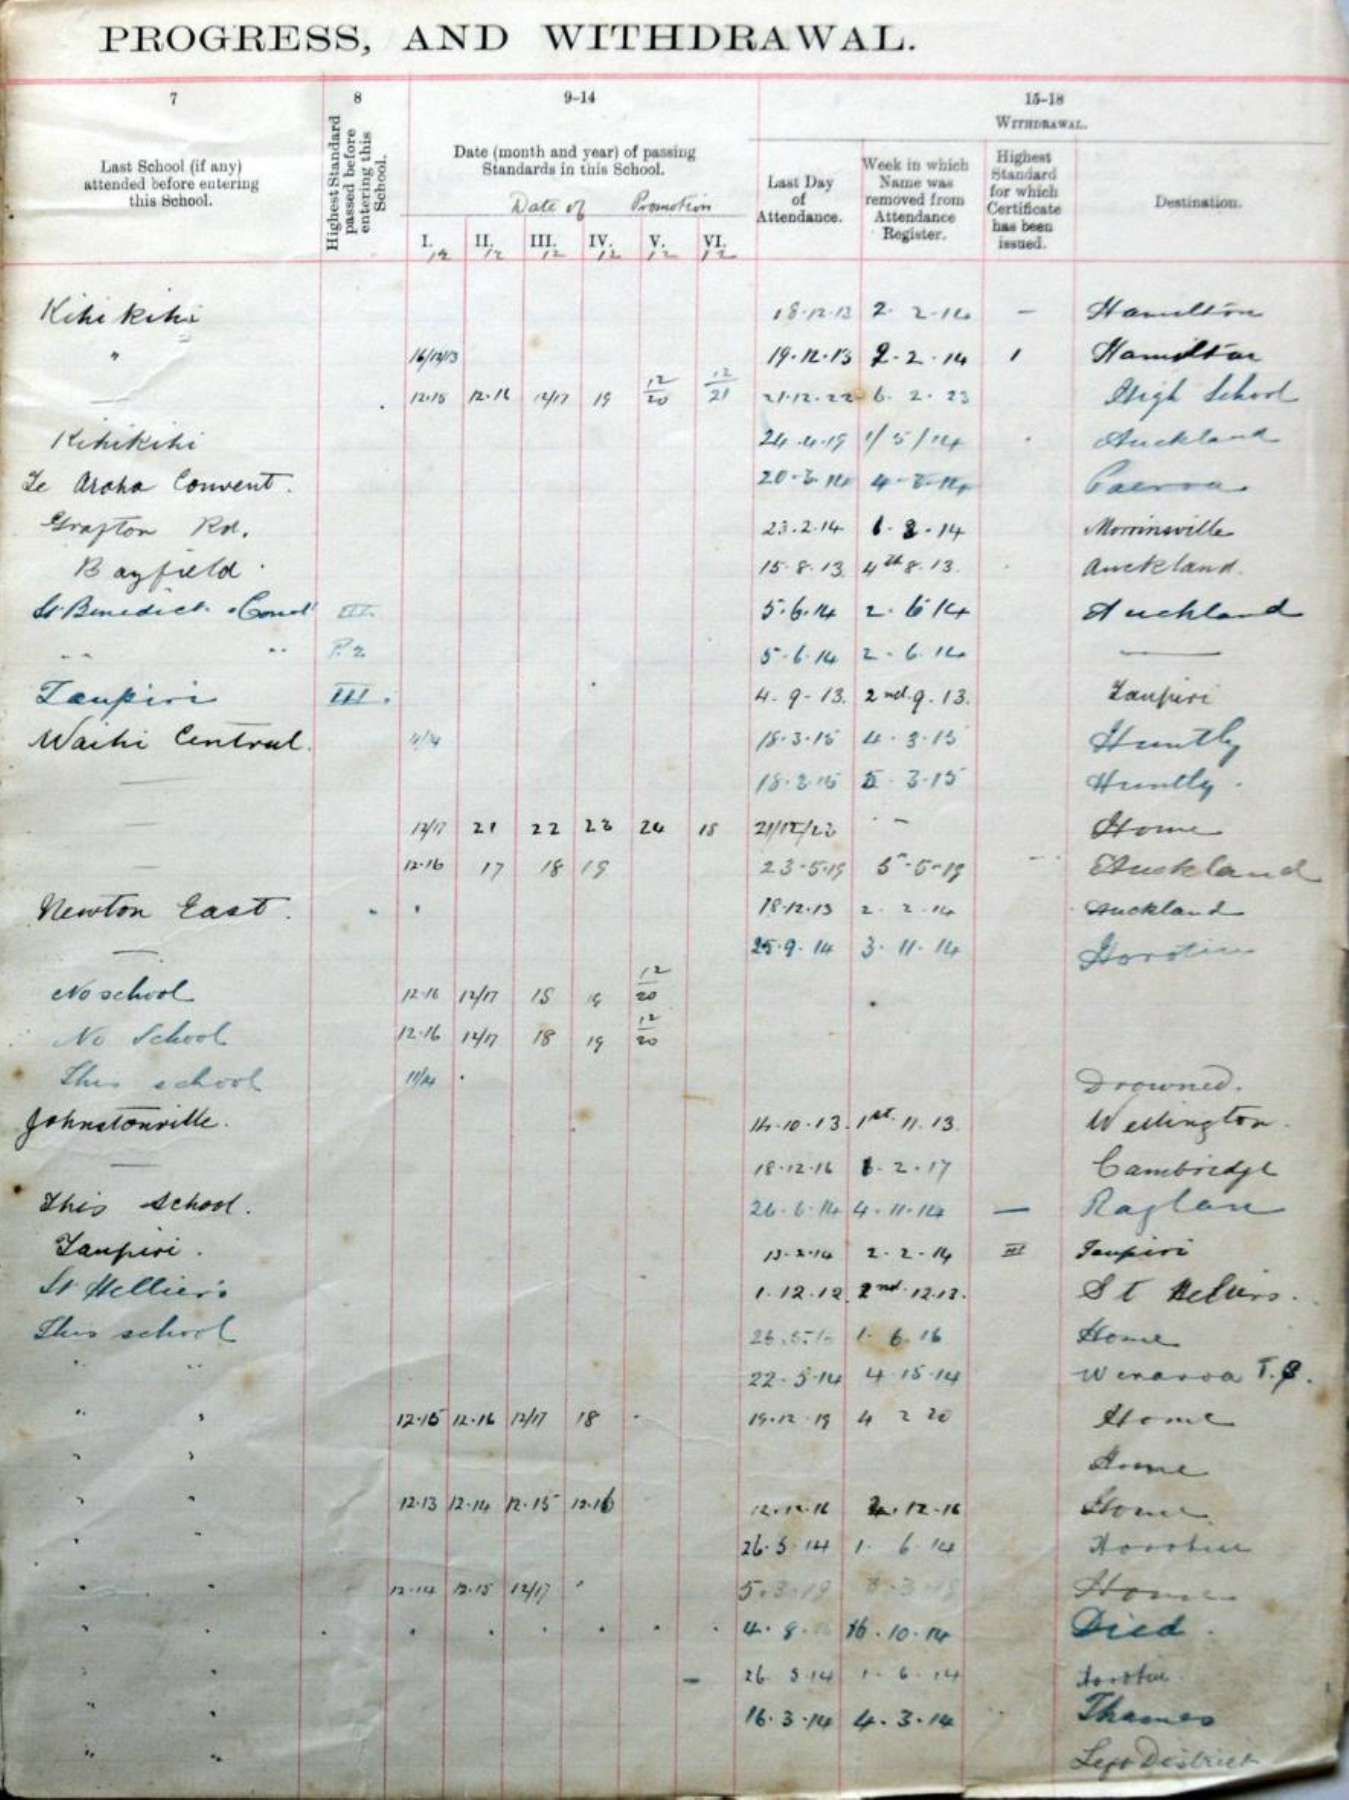 PROGRESS, AND WITHDRAWAL.
7 8 9-14 15-18
WITHDRAWAL.
Last School (if any) attended before entering this School.
Highest Standard passed before entering this School.
Date (month and year) of passing Standards in this School.
Date of Promotion
I. II. III. IV. V. VI.
12 12 12 12 12 12
Last Day of Attendance.
Week in which Name was removed from Attendance Register.
Highest Standard for which Certificate has been issued.
Destination.
Kihikihi 18.12.13 2. 2-14 — Hamilton
" 16/12/13 19.12.13 2.2.14 1 Hamilton
— 12.15 12.16 12/17 19 12/20 12/21 21.12.22 6. 2. 23 High School
Kihikihi 24.4.19 1/5/14 Auckland
Te Aroha Convent. Paeroa
Grafton Rd. 23.2.14 Morrinsville
Bayfield 15.8.13. 4th 8.13. Auckland.
St Benedict Conv't III. 5.6.14 2. 6 14 Auckland
" " P.2 5-6.14 2-6.14 —
Taupiri III. 4.9-13. 2nd.9.13. Taupiri
Waihi Central. 18.3.15 4.3.15 Huntly
— 18.3.15 5 3.15 Huntly.
— 12/17 21 22 23 24 Home
— 12.16 17 18 19 23-5-19 5-5-19 Auckland
Newton East. 18.12.13 2. 2.14 Auckland
— 25.9.14 3.11.14 Horotiu
No school 12.16 12/17 18 19 12/20
No School 12.16 12/17 18 19 12/20
This school 11/14 Drowned.
Johnstonville. 14.10.13. 1st.11.13. Wellington.
— 18.12.16 2.17 Cambridge
This School. 26.6.14 4.11.14 — Raglan
Taupiri. 2-2-14 III Taupiri
St Hellier's 2nd.12.13. St Heliers.
This school 1. 6.16 Home
" " 22.5.14 4.15.14
" " 12.15 12.16 12/17 18 19.12.19 4 2 20 Home
" " Home
" " 12.13 12.14 12.15 12.16 12.12.16 12.16 Home
" " 26.5.14 1. 6.14 Horotiu
" " 12.14 12.15 12/17 5.3.19 Home
" " 10.14 Died.
" " 26 5.14 1. 6.14 Horotiu
" " 16.3.14 4.3.14 Thames
" " Left District